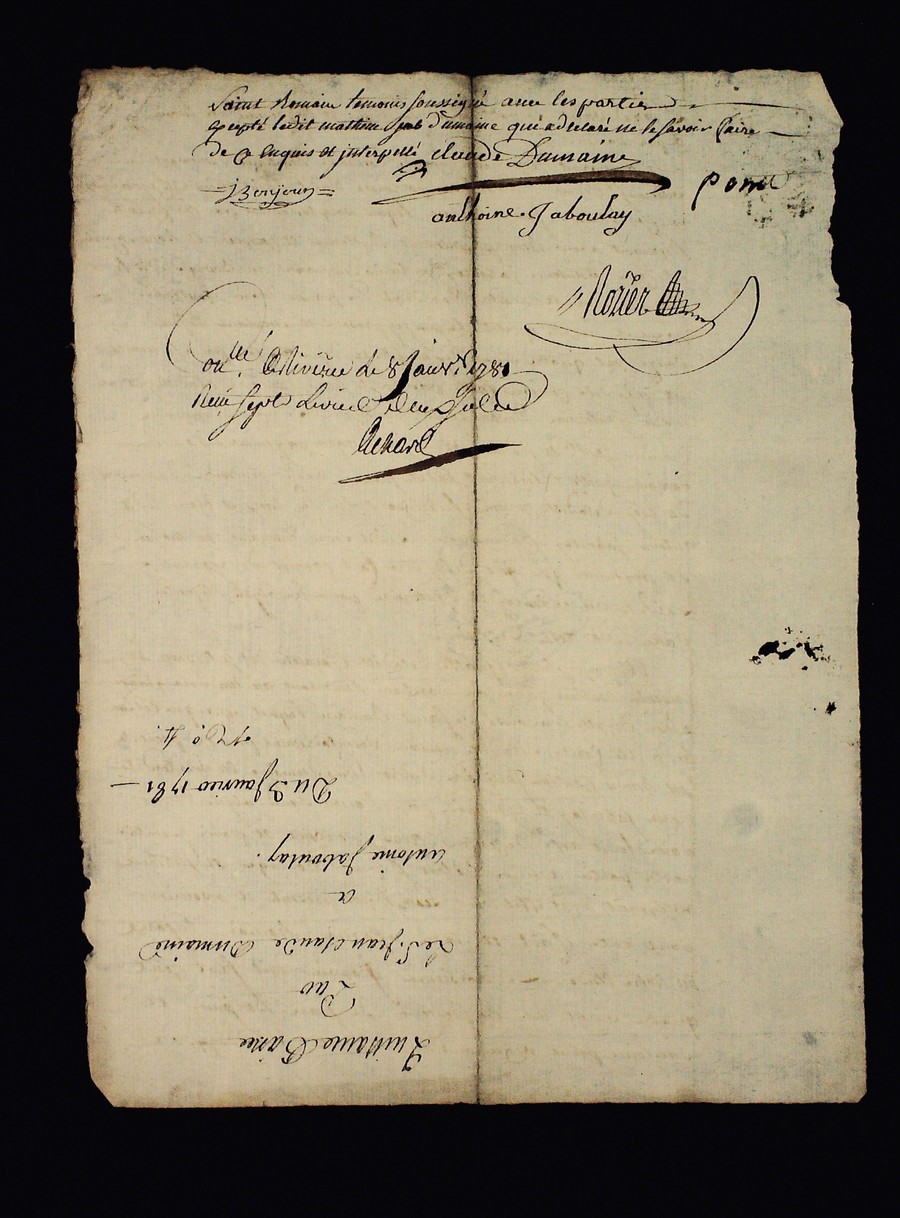 Saint Romain temoins soussigné avec les parties
excepté ledit mathieu dumaine qui a declaré ne le savoir faire
de ce Enquis et jnterpellé claude Dumaine
JBonjour
anthoine Jaboulay
Rozier
Con.lé a Riverie le 8 Janv. 1781
Reçu sept livres dix sols
Quittance
Par
Le S. Jean claude Dumaine
a
Antoine Jaboulay.
Du 3 Janvier 1781
N.° 4.